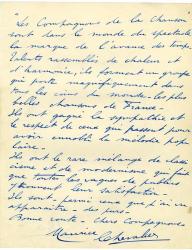 "Les Compagnons de la Chanson
sont dans le monde du spectacle
la marque de l'avance des temps.
Talents rassemblés de chaleur et
d'harmonie, ils forment un groupe
qui porte magnifiquement dans
tous les coins du monde les plus
belles chansons de France.
Ils ont gagné la sympathie et
le respect de ceux qui passent pour
avoir ennobli la mélodie popu-
laire.
Ils ont le rare mélange de
et de modernisme qui fait
que toutes les
leur satisfaction.
Ils sont parmi ceux que j'ai
des purs.
Bonne route - Chers Compagnons
Maurice Chevalier